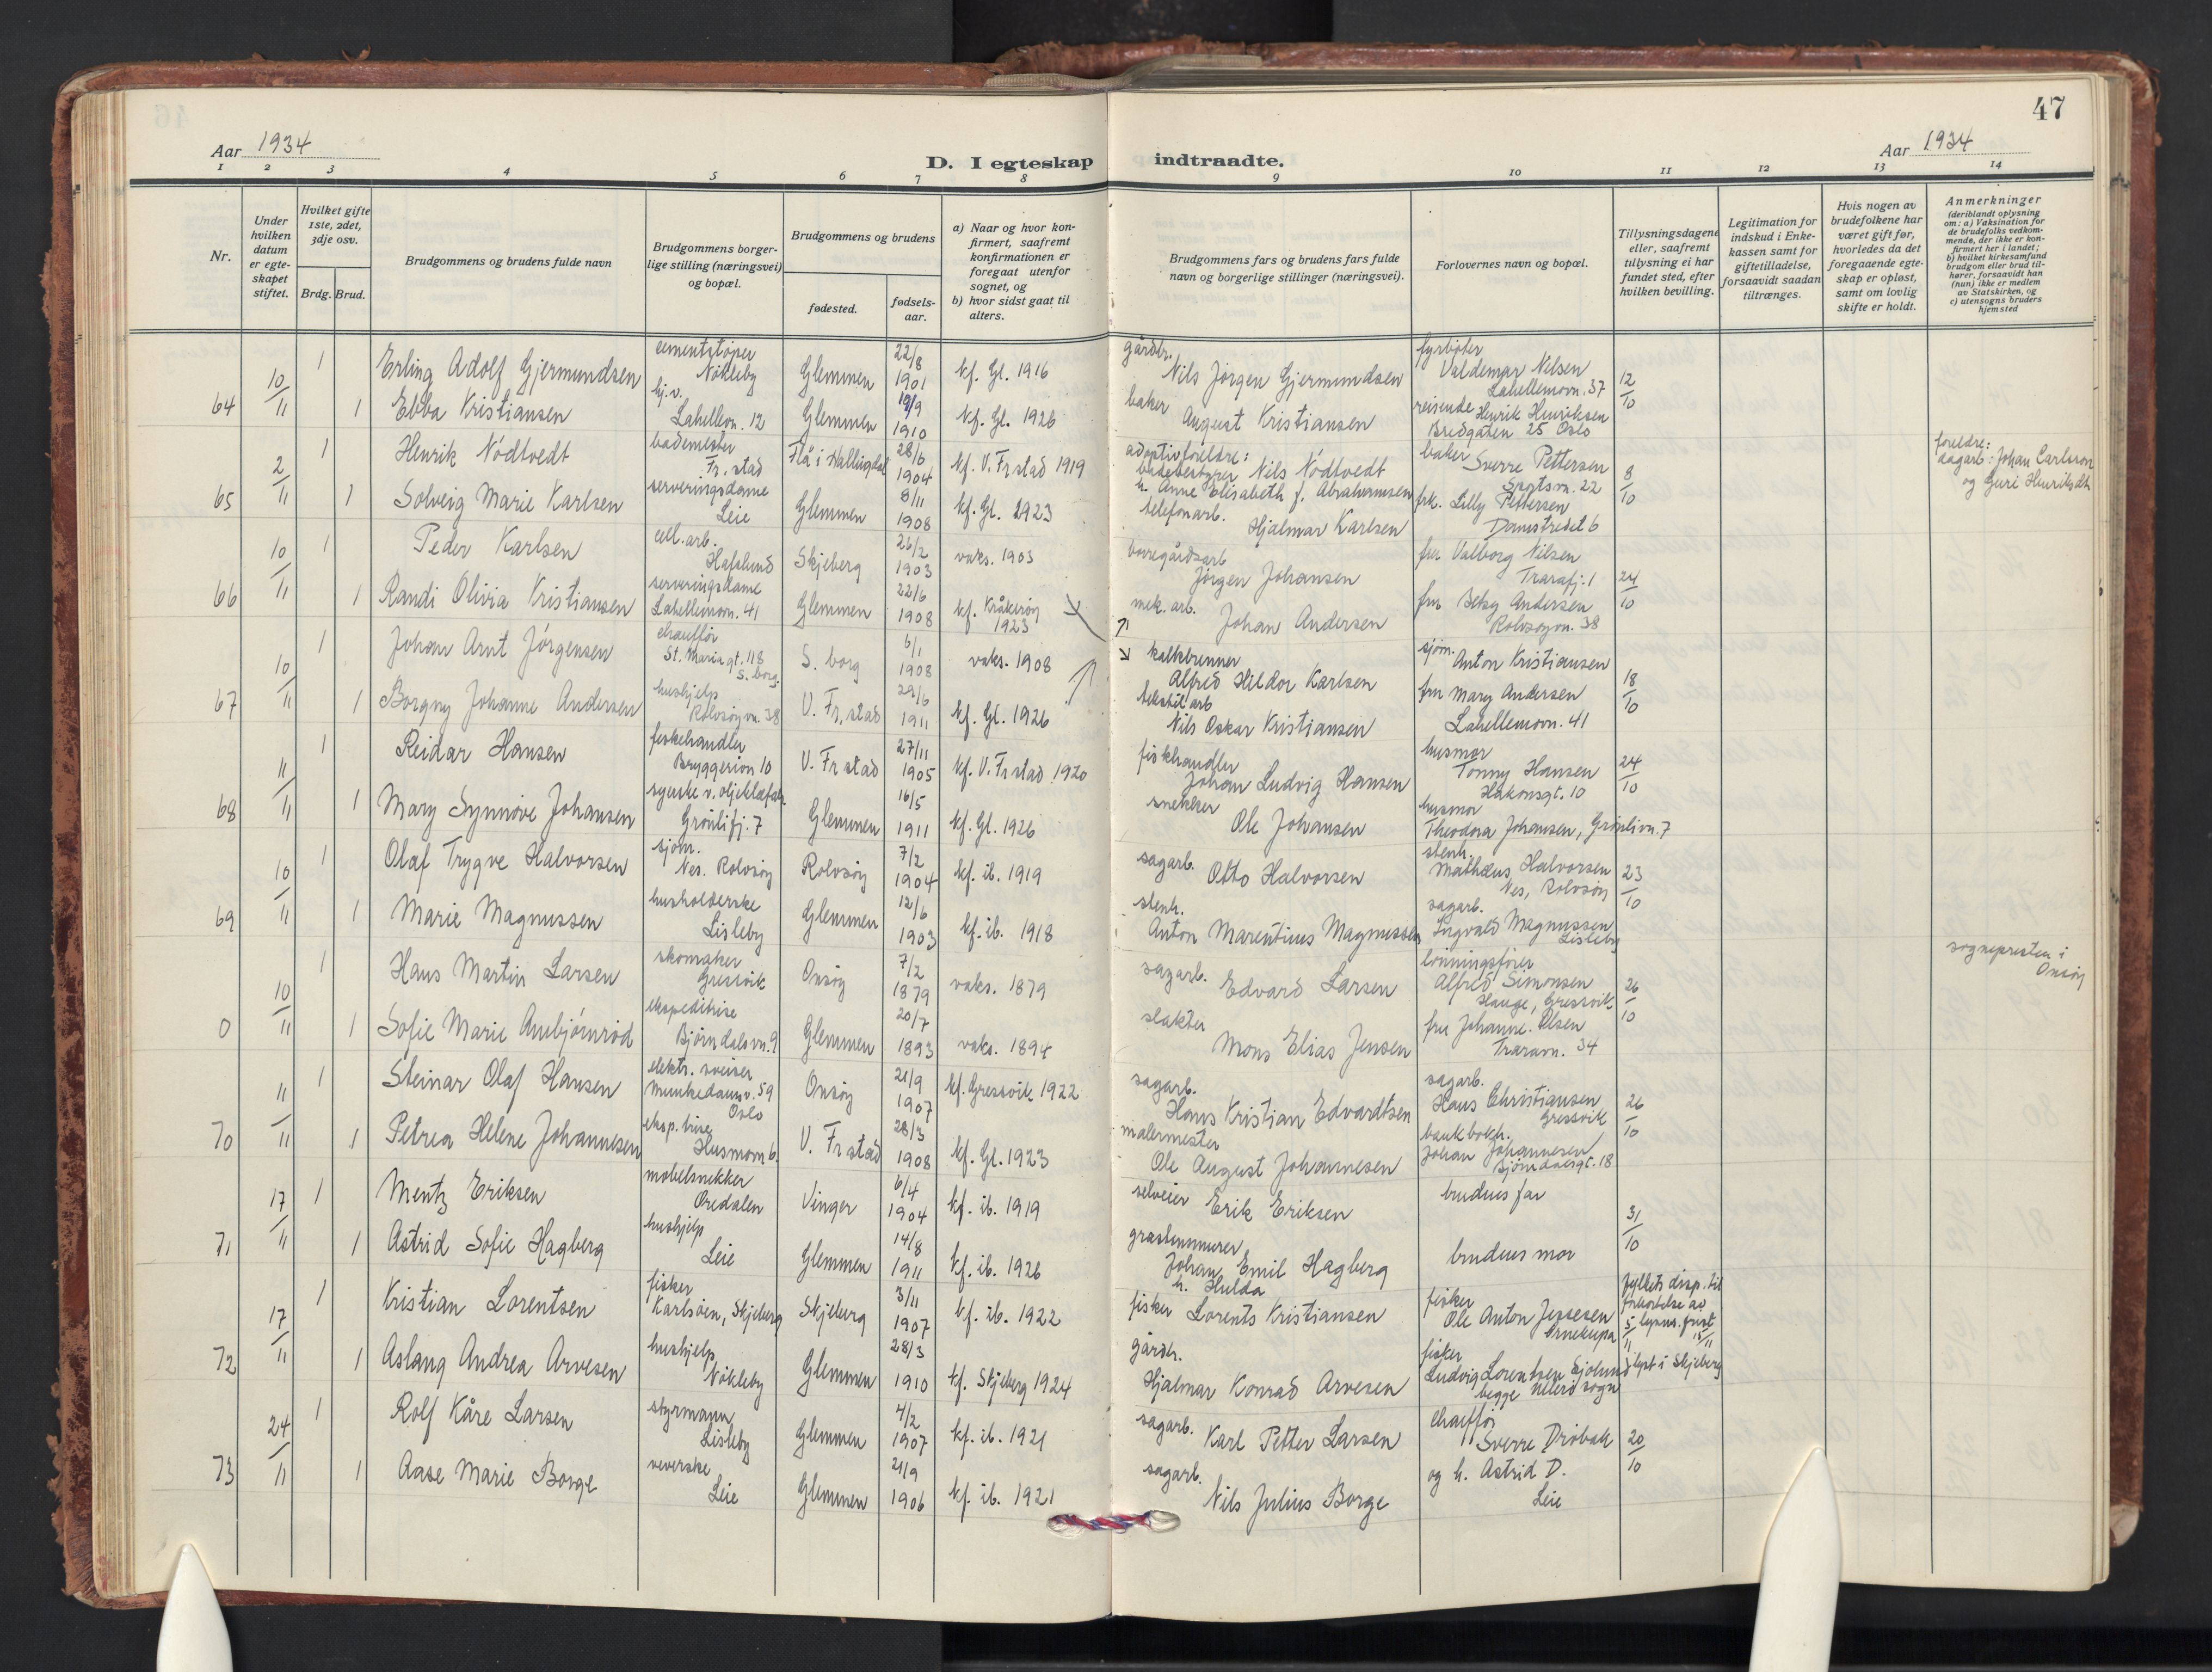 47
Aar 1934
D. I egteskap indtraadte.
Aar 1934
1 2 3 4 5 6 7 8 9 10 11 12 13 14
Nr.
Under hvilken datum er egteskapet stiftet.
Hvilket gifte 1ste, 2det, 3dje osv.
Brdg. Brud.
Brudgommens og brudens fulde navn
Brudgommens borgerlige stilling (næringsvei) og bopæl.
Brudgommens og brudens
fødested.
fødselsaar.
a) Naar og hvor konfirmert, saafremt konfirmationen er foregaat utenfor sognet, og
b) hvor sidst gaat til alters.
Brudgommens fars og brudens fars fulde navn og borgerlige stillinger (næringsvei).
Forlovernes navn og bopæl.
Tillysningsdagene eller, saafremt tillysning ei har fundet sted, efter hvilken bevilling.
Legitimation for indskud i Enkekassen samt for giftetilladelse, forsaavidt saadan tiltrænges.
Hvis nogen av brudefolkene har været gift før, hvorledes da det foregaaende egteskap er opløst, samt om lovlig skifte er holdt.
Anmerkninger
(deriblandt oplysning om: a) Vaksination for de brudefolks vedkommende, der ikke er konfirmert her i landet;
b) hvilket kirkesamfund brudgom eller brud tilhører, forsaavidt han (hun) ikke er medlem av Statskirken, og
c) utensogns bruders hjemsted
64 10/11 1 Erling Adolf Gjermundsen cementstøper Nøkleby Glemmen 22/8 1901 kf. Gl. 1916 gårdbr. Nils Jørgen Gjermundsen fyrbøter Valdemar Nilsen Lahellemovn. 37 12/10
1 Ebba Kristiansen hj.v. Lahellevn. 12 Glemmen 19/9 1910 kf. Gl. 1926 baker August Kristiansen reisende Henrik Henriksen Bredgaten 25 Oslo
65 2/11 1 Henrik Nødtvedt bademester Fr.stad Flå i Hallingdal 28/6 1904 kf. V. Fr.stad 1919 adoptivforeldre: badebestyrer Nils Nødtvedt h. Anne Elisabeth f. Abrahamsen baker Sverre Pettersen Sportsvn. 22 8/10 foreldre: dagarb: Johan Carlsson og Guri Henriksdtr
1 Solveig Marie Karlsen serveringsdame Leie Glemmen 8/11 1908 kf. Gl. 1923 telefonarb. Hjalmar Karlsen frk. Lilly Pettersen Damstredet 6
66 10/11 1 Peder Karlsen cell.arb. Hafslund Skjeberg 26/2 1903 vaks. 1903 borregårdsarb Jørgen Johansen fru Valborg Nilsen Trarafj. 1 24/10
1 Randi Olivia Kristiansen serveringsdame Lahellemovn. 41 Glemmen 22/6 1908 kf. Kråkerøy 1923 mek. arb. Johan Andersen fru Betsy Andersen Rolvsøyvn. 38
67 10/11 1 Johan Arnt Jørgensen chauffør St. Maria gt. 118 S. borg. S. borg 6/1 1908 vaks. 1908 kalkbrenner Alfred Hildor Karlsen sjøm. Anton Kristiansen 18/10
1 Borgny Johanne Andersen hushjelp Rolvsøyvn. 38 V. Fr.stad 29/6 1911 kf. Gl. 1926 tekstil arb Nils Oskar Kristiansen fru Mary Andersen Lahellemovn. 41
68 11/11 1 Reidar Hansen fiskehandler Bryggerivn 10 V. Fr stad 27/11 1905 kf. V. Fr stad 1920 fiskhandler Johan Ludvig Hansen husmor Tonny Hansen Håkonsgt. 10 24/10
1 Mary Synnøve Johansen syerske v. oljeklæfab. Grønlifj. 7 Glemmen 16/5 1911 kf. Gl. 1926 snekker Ole Johansen husmor Theodora Johansen, Grønlivn. 7
69 10/11 1 Olaf Trygve Halvorsen sjøm. Nes. Rolvsøy Rolvsøy 7/2 1904 kf. ib. 1919 sagarb. Otto Halvorsen stenh. Mathæus Halvorsen Nes, Rolvsøy 23/10
1 Marie Magnussen husholderske Lisleby Glemmen 12/6 1903 kf. ib. 1918 stenh. Anton Marentius Magnussen sagarb. Ingvald Magnussen Lisleby
0 10/11 1 Hans Martin Larsen skomaker Gressvik Onsøy 7/2 1879 vaks. 1879 sagarb. Edvard Larsen lønningsfører Alfred Simonsen Hauge, Gressvik 26/10 sognepresten i Onsøy
1 Sofie Marie Aubjørnrød ekspeditrise Bjørndalsvn. 9 Glemmen 20/7 1893 vaks. 1894 slakter Mons Elias Jensen fru Johanne Olsen Traravn. 34
70 11/11 1 Steinar Olaf Hansen elektr. sveiser Munkedamsv. 59 Oslo Onsøy 21/9 1907 kf. Gressvik 1922 sagarb. Hans Kristian Edvardtsen sagarb. Hans Christiansen Gressvik 26/10
1 Petrea Helene Johannesen eksp. trise Husmovn 6. V. Fr stad 28/3 1908 kf. Gl. 1923 malermester Ole August Johannesen bankbokh. Johan Johannesen Bjørndalsgt. 18
71 17/11 1 Mentz Eriksen møbelsnekker Øredalen Vinger 6/4 1904 kf. ib. 1919 selveier Erik Eriksen brudens far 31/10
1 Astrid Sofie Hagberg hushjelp Leie Glemmen 14/8 1911 kf. ib. 1926 gråstenmurer Johan Emil Hagberg h. Hulda brudens mor
72 17/11 1 Kristian Lorentsen fisker Karlsøen, Skjeberg Skjeberg 3/11 1907 kf. ib. 1922 fisker Lorents Kristiansen fisker Ole Anton Jessesen fylkets disp. til forkortelse av lysn. frist 5/11 15/11
1 Aslaug Andrea Arvesen hushjelp Nøkleby Glemmen 28/3 1910 kf. Skjeberg 1924 gårdbr. Hjalmar Konrad Arvesen fisker Ludvig Lorentsen Sjølund begge Ullerø sogn lyst i Skjeberg
73 24/11 1 Rolf Kåre Larsen styrmann Lisleby Glemmen 4/2 1907 kf. ib. 1921 sagarb. Karl Petter Larsen chauffør Sverre Drøbak 20/10
1 Aase Marie Borge veverske Leie Glemmen 21/9 1906 kf. ib. 1921 sagarb. Nils Julius Borge og h. Astrid D. Leie